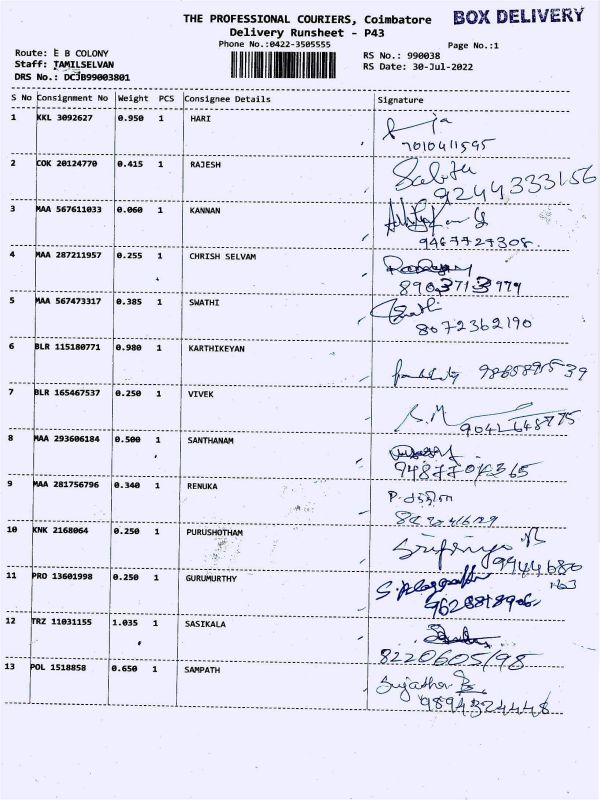 THE PROFESSIONAL COURIERS, Coimbatore BOX DELIVERY
Delivery Runsheet - P43
Phone No.:0422-3505555 Page No.:1
Route: E B COLONY RS No.: 990038
Staff: TAMILSELVAN RS Date: 30-Jul-2022
DRS No.: DCJB99003801
S No Consignment No Weight PCS Consignee Details Signature
1 KKL 3092627 0.950 1 HARI
7010411595
2 COK 20124770 0.415 1 RAJESH
9244333156
3 MAA 567611033 0.060 1 KANNAN
9487727308.
4 MAA 287211957 0.255 1 CHRISH SELVAM
8903713979
5 MAA 567473317 0.385 1 SWATHI
8072362190
6 BLR 115180771 0.980 1 KARTHIKEYAN
7 BLR 165467537 0.250 1 VIVEK
8 MAA 293606184 0.500 1 SANTHANAM
9 MAA 281756796 0.340 1 RENUKA
10 KNK 2168064 0.250 1 PURUSHOTHAM
9944680
11 PRO 13601998 0.250 1 GURUMURTHY
12 TRZ 11031155 1.035 1 SASIKALA
8220605198
13 POL 1518858 0.650 1 SAMPATH
9894324448